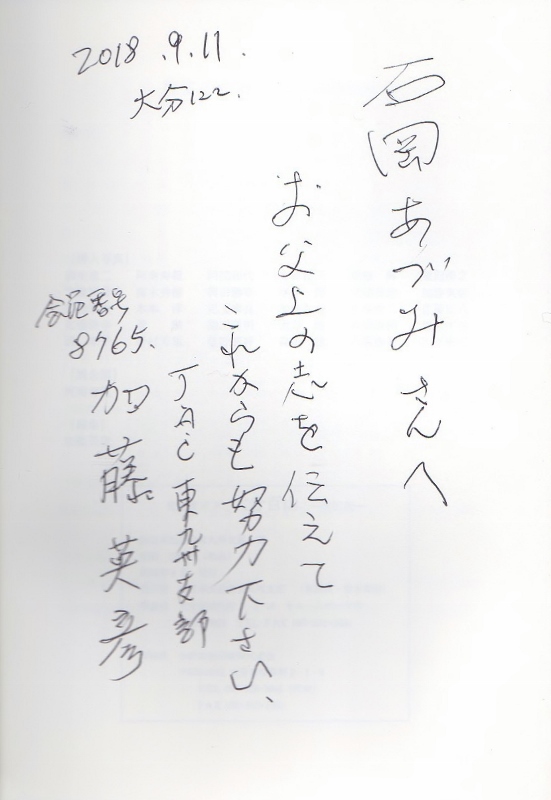 2018.9.11.
大分にて.
石岡あづみさんへ
お父上の志を伝えて
これからも努力下さい、
JAC東九州支部
会員番号
8765.
加藤英彦